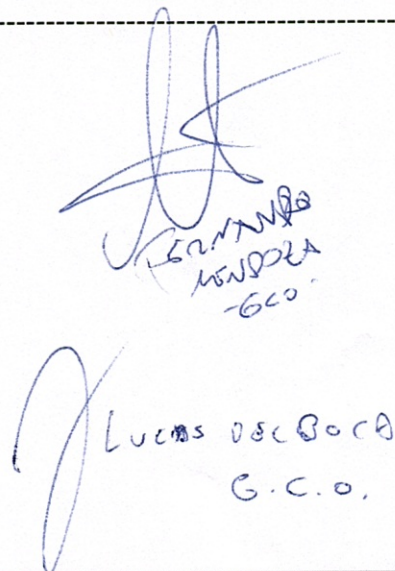 FERNANDO
MENDOZA
-GCO-
LUCAS DEL BOCA
G.C.O.